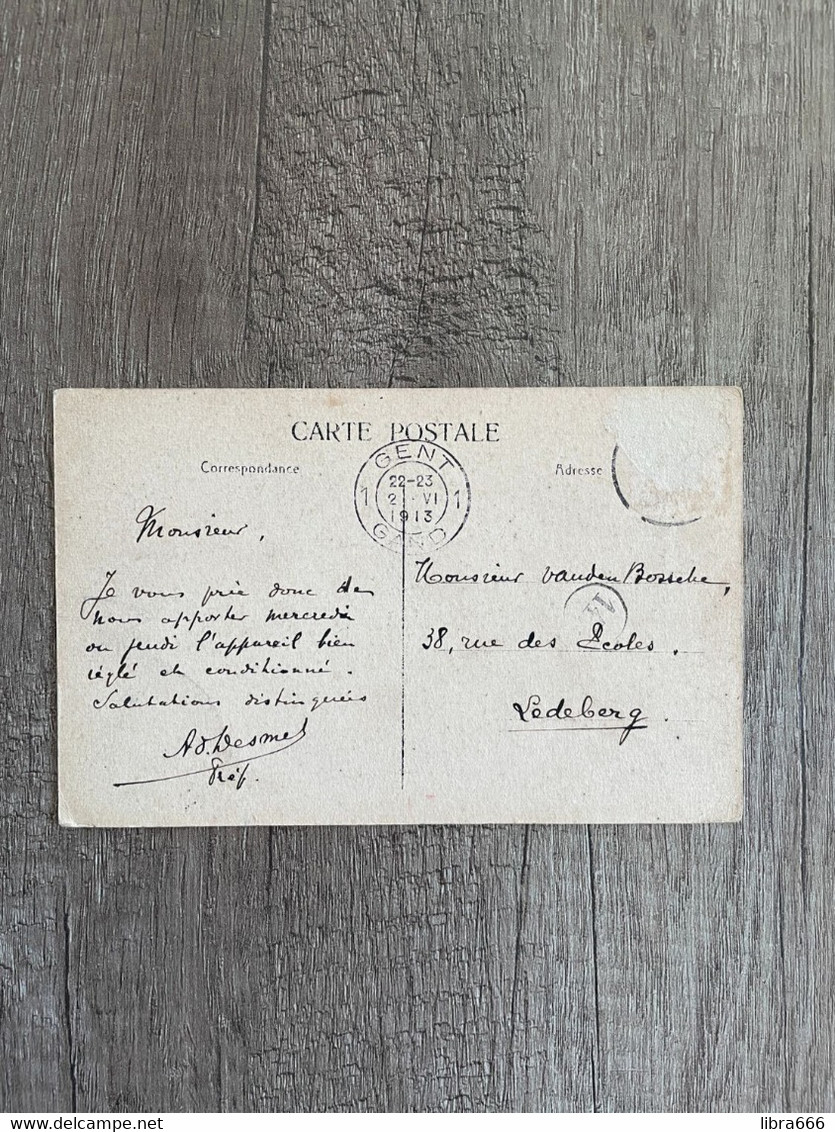 CARTE POSTALE
Correspondance
Adresse
GENT
1 22-23 1
2 · VI
1913
GAND
Monsieur,
Je vous prie donc de
nous apporter mercredi
ou jeudi l'appareil bien
réglé et conditionné.
Salutations distinguées
Ad. Desmet
Préf.
Monsieur Vanden Bossche,
38, rue des Ecoles.
Ledeberg.
libra666
delcampe.net